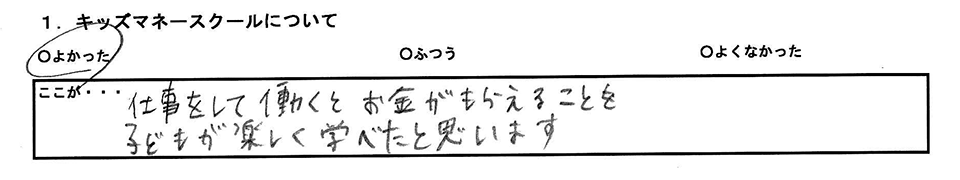 1．キッズマネースクールについて
○よかった ○ふつう ○よくなかった
ここが・・・
仕事をして働くとお金がもらえることを
子どもが楽しく学べたと思います